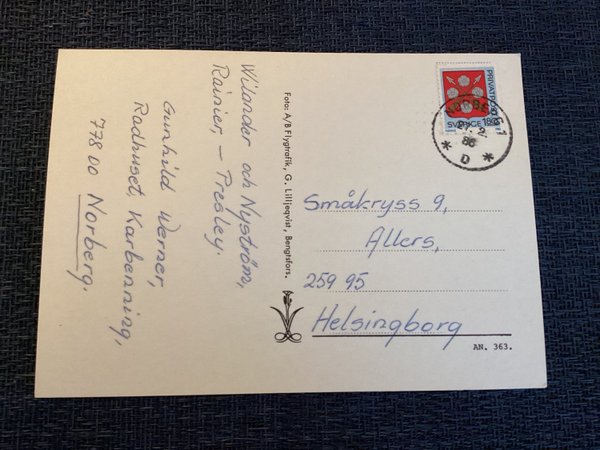 Wilander och Nyström,
Rainier, – Presley.
Gunhild Werner,
Radhuset, Karbenning,
778 00 Norberg.
Foto: A/B Flygtrafik, G. Lilljeqvist, Bengtsfors.
PRIVATPOST
SVERIGE 180
NORBERG 1
86
D
Småkryss 9,
Allers,
259 95
Helsingborg
AN. 363.